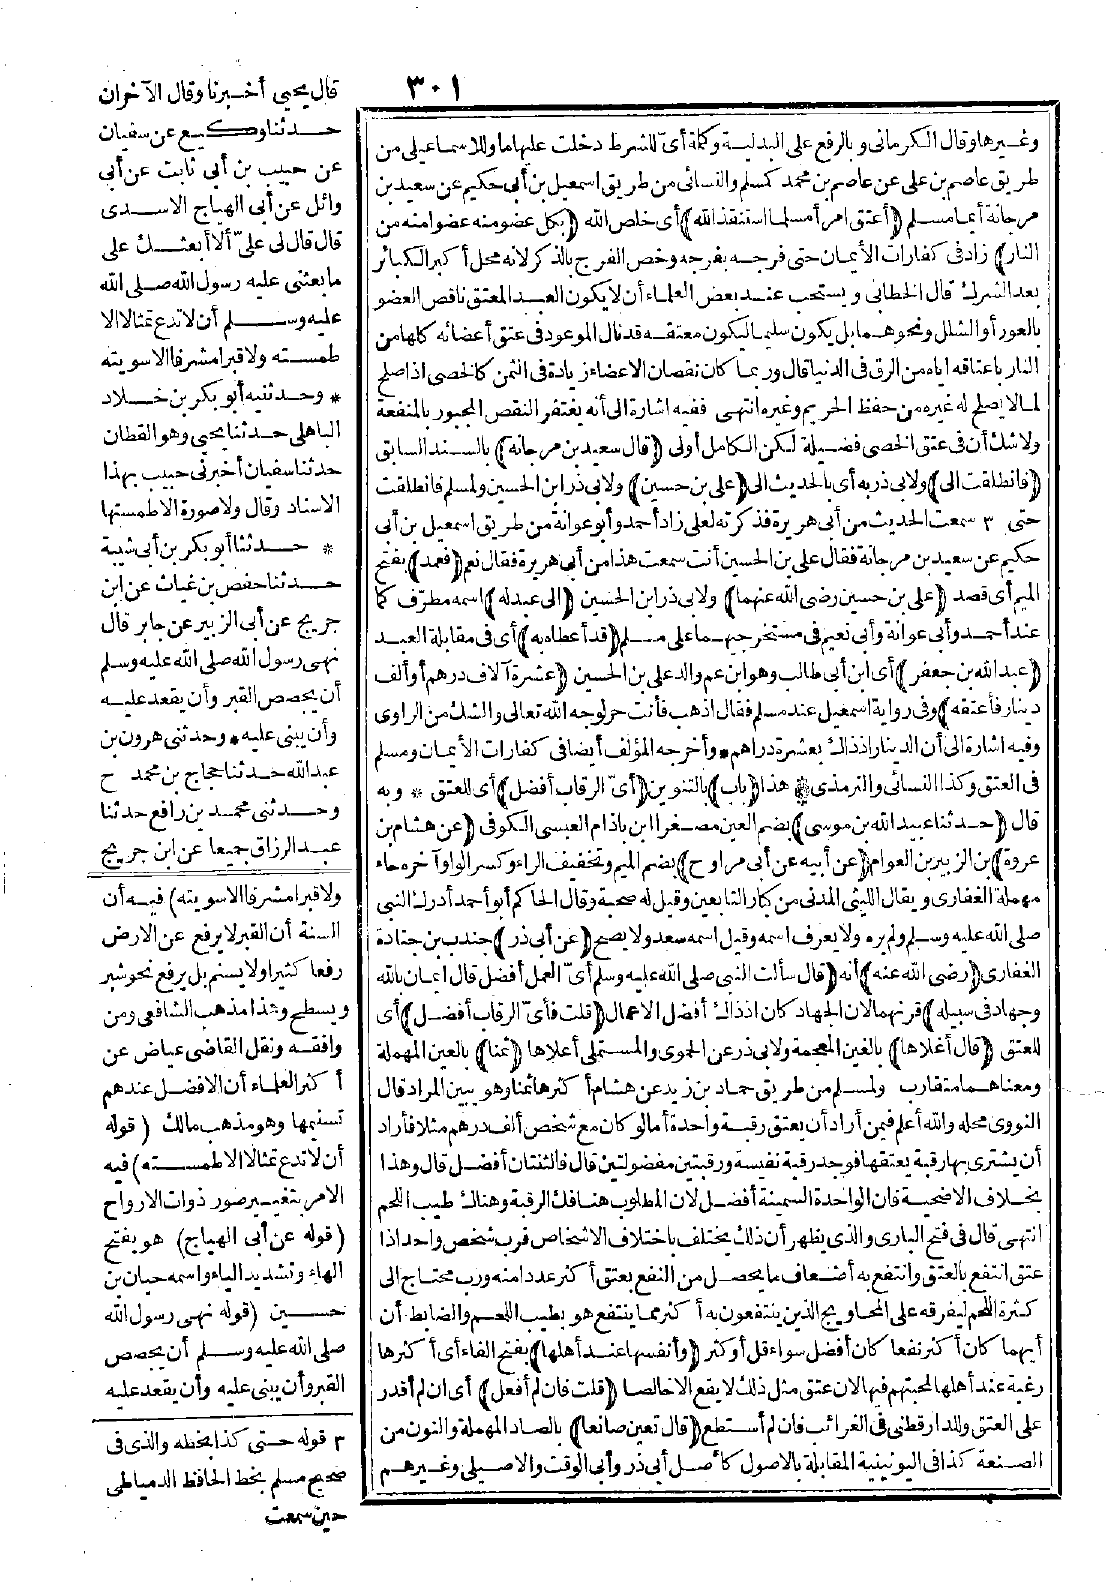 ٣٠١
وغيرها وقال الكرمانى وبالرفع على البدلية وكلمة أىّ للشرط دخلت عليها ما وللاسماعيلى من
طريق عاصم بن على عن عاصم بن محمد كمسلم والنسائى من طريق اسمعيل بن أبى حكيم عن سعيد بن
مرجانة أيما مسلم (أعتق امرأ مسلما استنقذ الله) أى خلص الله (بكل عضو منه عضوا منه من
النار) زاد فى كفارات الأيمان حتى فرجه بفرجه وخص الفرج بالذكر لانه محل أكبر الكبائر
بعد الشرك قال الخطابى ويستحب عند بعض العلماء أن لا يكون العبد المعتق ناقص العضو
بالعور أو الشلل ونحوهما بل يكون سليما ليكون معتقه قد نال الموعود فى عتق أعضائه كلها من
النار باعتاقه اياه من الرق فى الدنيا قال وربما كان نقصان الاعضاء زيادة فى الثمن كالخصى اذا صلح
لما لا يصلح له غيره من حفظ الحريم وغيره انتهى ففيه اشارة الى أنه يغتفر النقص المجبور بالمنفعة
ولا شك أن فى عتق الخصى فضيلة لكن الكامل أولى (قال سعيد بن مرجانه) بالسند السابق
(فانطلقت الى) ولابى ذر به أى بالحديث الى (على بن حسين) ولابى ذر ابن الحسين ولمسلم فانطلقت
حتى ٣ سمعت الحديث من أبى هريرة فذكرته لعلى زاد أحمد وأبو عوانة من طريق اسمعيل بن أبى
حكيم عن سعيد بن مرجانة فقال على بن الحسين أنت سمعت هذا من أبى هريرة فقال نعم (فعمد) بفتح
الميم أى قصد (على بن حسين رضى الله عنهما) ولابى ذر ابن الحسين (الى عبد له) اسمه مطرّف كما
عند أحمد وأبى عوانة وأبى نعيم فى مستخرجيهما على مسلم (قد أعطاه به) أى فى مقابلة العبد
(عبد الله بن جعفر) أى ابن أبى طالب وهو ابن عم والد على بن الحسين (عشرة آلاف درهم أو ألف
دينار فأعتقه) وفى رواية اسمعيل عند مسلم فقال اذهب فأنت حر لوجه الله تعالى والشك من الراوى
وفيه اشارة الى أن الدينار اذ ذاك بعشرة دراهم * وأخرجه المؤلف أيضا فى كفارات الأيمان ومسلم
فى العتق وكذا النسائى والترمذى * هذا (باب) بالتنوين (أىّ الرقاب أفضل) أى للعتق * وبه
قال (حدثنا عبيد الله بن موسى) بضم العين مصغرا ابن باذام العبسى الكوفى (عن هشام بن
عروة) بن الزبير بن العوام (عن أبيه عن أبى مراوح) بضم الميم وتخفيف الراء وكسر الواو آخره حاء
مهملة الغفارى ويقال الليثى المدنى من كبار التابعين وقيل له صحبة وقال الحاكم أبو أحمد أدرك النبى
صلى الله عليه وسلم ولم يره ولا يعرف اسمه وقيل اسمه سعد ولا يصح (عن أبى ذر) جندب بن جنادة
الغفارى (رضى الله عنه) أنه (قال سألت النبى صلى الله عليه وسلم أىّ العمل أفضل قال ايمان بالله
وجهاد فى سبيله) قرنهما لان الجهاد كان اذ ذاك أفضل الاعمال (قلت فأىّ الرقاب أفضل) أى
للعتق (قال أغلاها) بالغين المعجمة ولابى ذر عن الحموى والمستملى أعلاها (ثمنا) بالعين المهملة
ومعناهما متقارب ولمسلم من طريق حماد بن زيد عن هشام أكثرها ثمنا وهو يبين المراد قال
النووى محله والله أعلم فيمن أراد أن يعتق رقبة واحدة أما لو كان مع شخص ألف درهم مثلا فأراد
أن يشترى بها رقبة يعتقها فوجد رقبة نفيسة ورقبتين مفضولتين قال فالثنتان أفضل قال وهذا
بخلاف الاضحية فان الواحدة السمينة أفضل لان المطلوب هنا فك الرقبة وهناك طيب اللحم
انتهى قال فى فتح البارى والذى يظهر أن ذلك يختلف باختلاف الاشخاص فرب شخص واحد اذا
عتق انتفع بالعتق وانتفع به أضعاف ما يحصل من النفع بعتق أكثر عددا منه ورب محتاج الى
كثرة اللحم ليفرقه على المحاويج الذين ينتفعون به أكثر مما ينتفع هو بطيب اللحم والضابط أن
أيهما كان أكثر نفعا كان أفضل سواء قل أو كثر (وأنفسها عند أهلها) بفتح الفاء أى أكثرها
رغبة عند أهلها لمحبتهم فيها لان عتق مثل ذلك لا يقع الا خالصا (قلت فان لم أفعل) أى ان لم أقدر
على العتق وللدارقطنى فى الغرائب فان لم أستطع (قال تعين صانعا) بالصاد المهملة والنون من
الصنعة كذا فى اليونينية المقابلة بالاصول كأصل أبى ذر وأبى الوقت والاصيلى وغيرهم
قال يحيى أخبرنا وقال الآخران
حدثنا وكيع عن سفيان
عن حبيب بن أبى ثابت عن أبى
وائل عن أبى الهياج الاسدى
قال قال لى علىّ ألا أبعثك على
ما بعثنى عليه رسول الله صلى الله
عليه وسلم أن لا تدع تمثالا الا
طمسته ولا قبرا مشرفا الا سويته
* وحدثنيه أبو بكر بن خلاد
الباهلى حدثنا يحيى وهو القطان
حدثنا سفيان أخبرنى حبيب بهذا
الاسناد وقال ولا صورة الا طمستها
* حدثنا أبو بكر بن أبى شيبة
حدثنا حفص بن غياث عن ابن
جريج عن أبى الزبير عن جابر قال
نهى رسول الله صلى الله عليه وسلم
أن يجصص القبر وأن يقعد عليه
وأن يبنى عليه * وحدثنى هرون بن
عبد الله حدثنا حجاج بن محمد ح
وحدثنى محمد بن رافع حدثنا
عبد الرزاق جميعا عن ابن جريج
ولا قبرا مشرفا الا سويته) فيه أن
السنة أن القبر لا يرفع عن الارض
رفعا كثيرا ولا يسنم بل يرفع نحو شبر
ويسطح وهذا مذهب الشافعى ومن
وافقه ونقل القاضى عياض عن
أكثر العلماء أن الافضل عندهم
تسنيمها وهو مذهب مالك (قوله
أن لا تدع تمثالا الا طمسته) فيه
الامر بتغيير صور ذوات الارواح
(قوله عن أبى الهياج) هو بفتح
الهاء وتشديد الياء واسمه حيان بن
حسين (قوله نهى رسول الله
صلى الله عليه وسلم أن يجصص
القبر وأن يبنى عليه وأن يقعد عليه
٣ قوله حتى كذا بخطه والذى فى
صحيح مسلم بخط الحافظ الدمياطى
حين سمعت